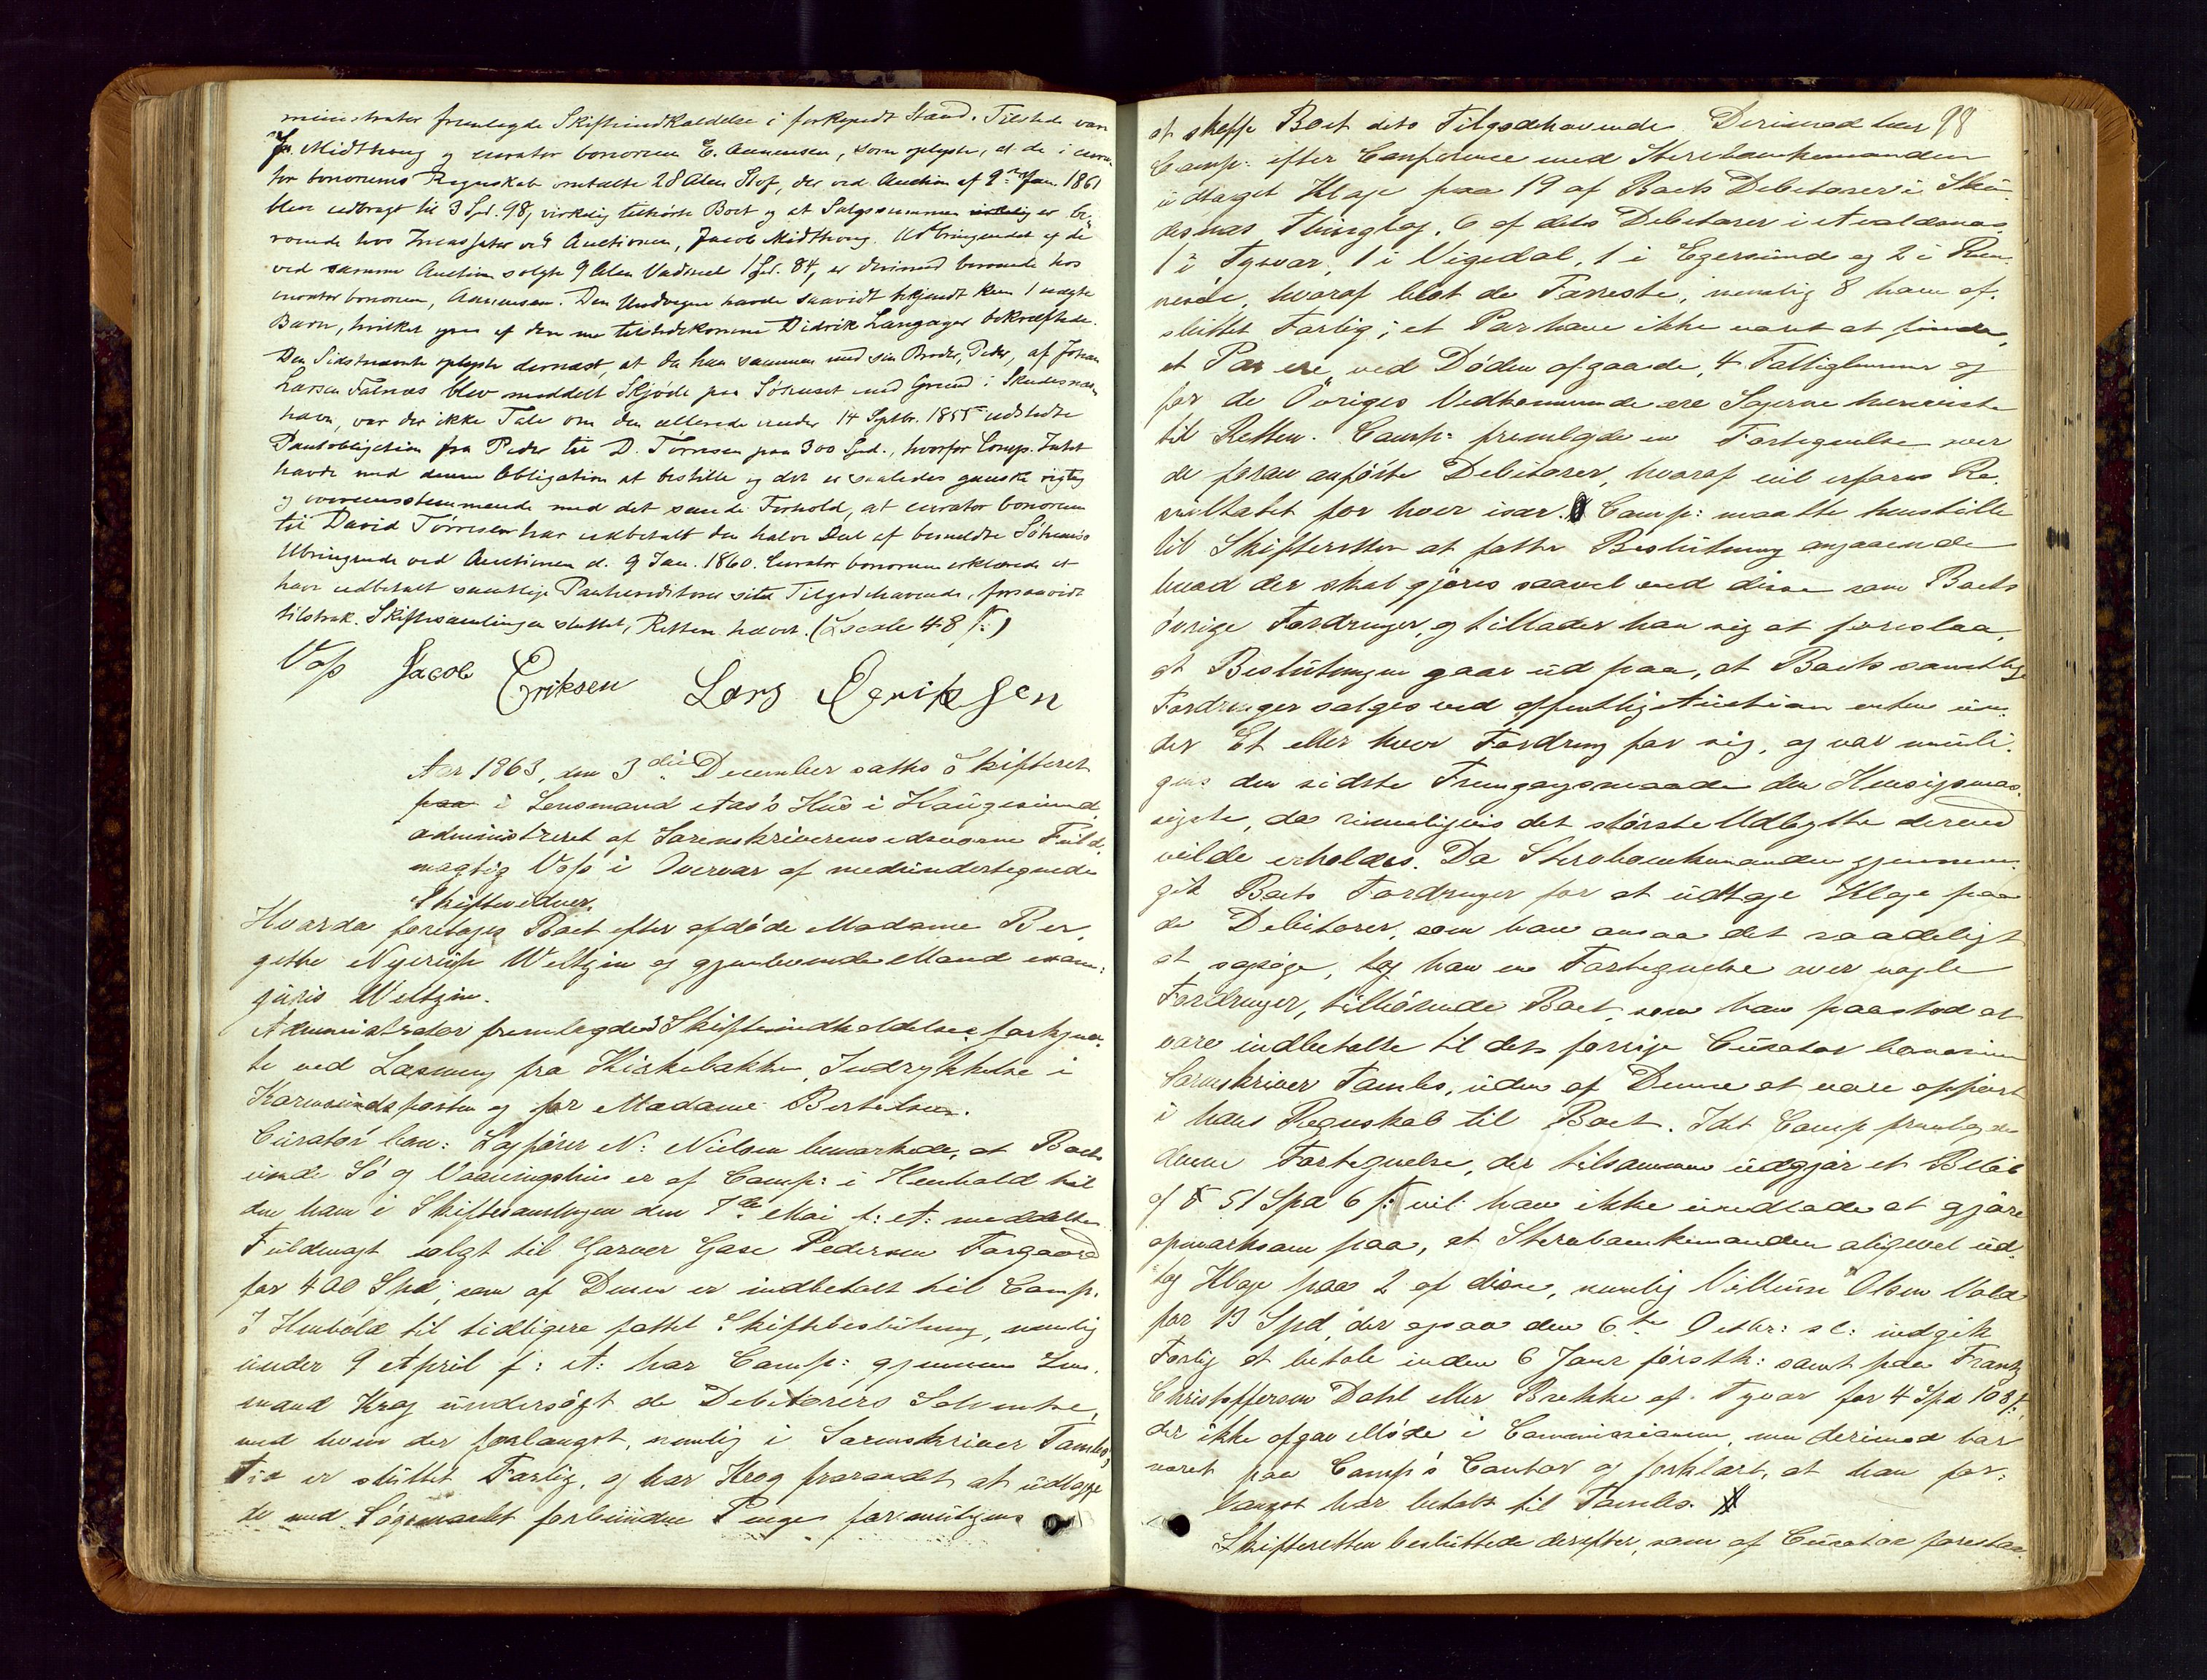 ministrator fremlagde Skifteindkaldelse i forkyndt Stand. Tilstede var
J. Midthaug og curator bonorum E. Aanensen, som oplyste, at de i cura-
tor bonorums Regnskab omtalte 28 Alen Stof, der ved Auction af 9de Jan. 1861
blev udbragt til 3 Spd. 98 ß, virkelig tilhørte Boet og at Salgssummen er be-
roende hos Incassator ved Auctionen, Jacob Midthaug. Udbringendet af de
ved samme Auction solgte 9 Alen Vadmel 1 Spd. 84 ß, er derimod beroende hos
curator bonorum, Aanensen. Den Undvegne havde saavidt bekjendt kun 1 uægte
Barn, hvilket ogsaa af den nu tilstedekomne Didrik Langager bekræftede.
Den Sidstnævnte oplyste dernæst, at da han sammen med sin Broder, Peder, af Johan
Larsen Falnæs blev meddelt Skjøde paa Søhuset med Grund i Skudesnæs-
havn, var der ikke Tale om den allerede under 14 Septbr. 1855 udstedte
Pantobligation fra Peder til D. Tørresen paa 300 Spd., hvorfor Comp. Intet
havde med denne Obligation at bestille og det er saaledes ganske rigtig
og overeensstemmende med det sande Forhold, at curator bonorum
til David Tørresen har udbetalt den halve Deel af bemeldte Søhuses
Udbringende ved Auctionen d. 9 Jan. 1860. Curator bonorum erklærede at
have udbetalt samtlige Panthavere sit Tilgodehavende, forsaavidt
tilstrak. Skiftesamlingen sluttet, Retten hævet. (Læste 48 ß.)
Voss Jacob Eriksen Lars Eerikssen
Aar 1863, den 3die December sattes Skifteret
paa i Lensmand Aas's Huus i Haugesund,
administreret af Sorenskriverens edsvorne Fuld-
mægtig Voss i Overvær af medundertegnede
Skiftevidner.
Hvorda foretoges Boet efter afdøde Madame Ber-
githe Nyerup Weltzin og gjenlevende Mand exam:
juris Weltzin.
Administrator fremlagde 3 Skifteindkaldelser forkynd-
te ved Læsning fra Kirkebakken, Indrykkelse i
Karmsundsposten og for Madame Bertelsen.
Curator bon: Sagfører N: Nielsen bemærkede, at Boets
iinde Sø og Vaaningshus er af Comp: i Henhold til
den ham i Skiftesamlingen den 7de Mai f: A: meddelte
Fuldmagt solgt til Garver Gase Pedersen Torgaard
for 400 Spd, som af Denne er indbetalt til Comp.
I Henhold til tidligere fattet Skiftebeslutning, nemlig
under 9 April f: A: har Comp: gjennem Lens-
mand Krog undersøgt de Debitorers Solventse,
med hvem der forlængst, nemlig i Sorenskriver Tambs,
Tid er sluttet Forlig, og har Krog fraraadet at udlægge
de med Søgsmaalet forbundne Penge formentligens
98
at skaffe Boet dets Tilgodehavende. Derimod har
Comp: efter Conference med Sterbboenkemanden
udtaget Klage paa 19 af Boets Debitorer i Sku-
desnæs Thinglag, 6 af dets Debitorer i Avaldsnæs,
1 i Tysvær, 1 i Vigedal, 1 i Egersund og 2 i Ren-
nesøe, hvoraf blot de Færreste, nemlig 8 have af-
sluttet Forlig; et Par have ikke været at finde,
et Par ere ved Døden afgaaede, 4 Fattiglemmer og
for de Øvriges Vedkommende ere Sagerne henviiste
til Retten. Comp: fremlagde en Fortegnelse over
de foran anførte Debitorer, hvoraf vil erfares Re-
sultatet for hver især. Comp: maatte henstille
til Skifteretten at fatte Beslutning angaaende
hvad der skal gjøres saavel med disse som Boets
øvrige Fordringer, og tillader han sig at foreslaa,
at Beslutningen gaar ud paa, at Boets samtlige
Fordringer sælges ved offentlig Auction enten un-
der Et eller hver Fordring for sig, og var muli-
gens den sidste Fremgangsmaade den Hensigtsmæs-
sigste, da rimeligvis det største Udbytte derved
vilde erholdes. Da Sterbboenkemanden gjennem-
gik Boets Fordringer for at udtage Klage paa
de Debitorer, som han ansaa det raadeligt
at sagsøge, tog han en Fortegnelse over nogle
Fordringer, tilhørende Boet, som han paastod at
være indbetalte til dets forrige Curator bonorum
Sorenskriver Tambs, uden af Denne at være opført
i hans Regnskab til Boet. Idet Comp fremlagde
denne Fortegnelse, der tilsammen udgjør et Beløb
af 51 Spd 6 ß: vil han ikke undlade at gjøre
opmærksom paa, at Sterbboenkemanden aligevel ud-
tog Klage paa 2 af disse, nemlig Villum Olsen Vold
for 13 Spd, der ogsaa den 6te Octbr: sl: indgik
Forlig at betale inden 6 Janr førstk: samt paa Frantz
Christoffersen Dahl eller Brekke af Tysvær for 4 Spd 108 ß:,
der ikke afgav Møde i Commissionen, men derimod har
været paa Comp's Contor og forklart, at han for-
længst har betalt til Tambs.
Skifteretten besluttede derefter, som af Curator foreslaa-